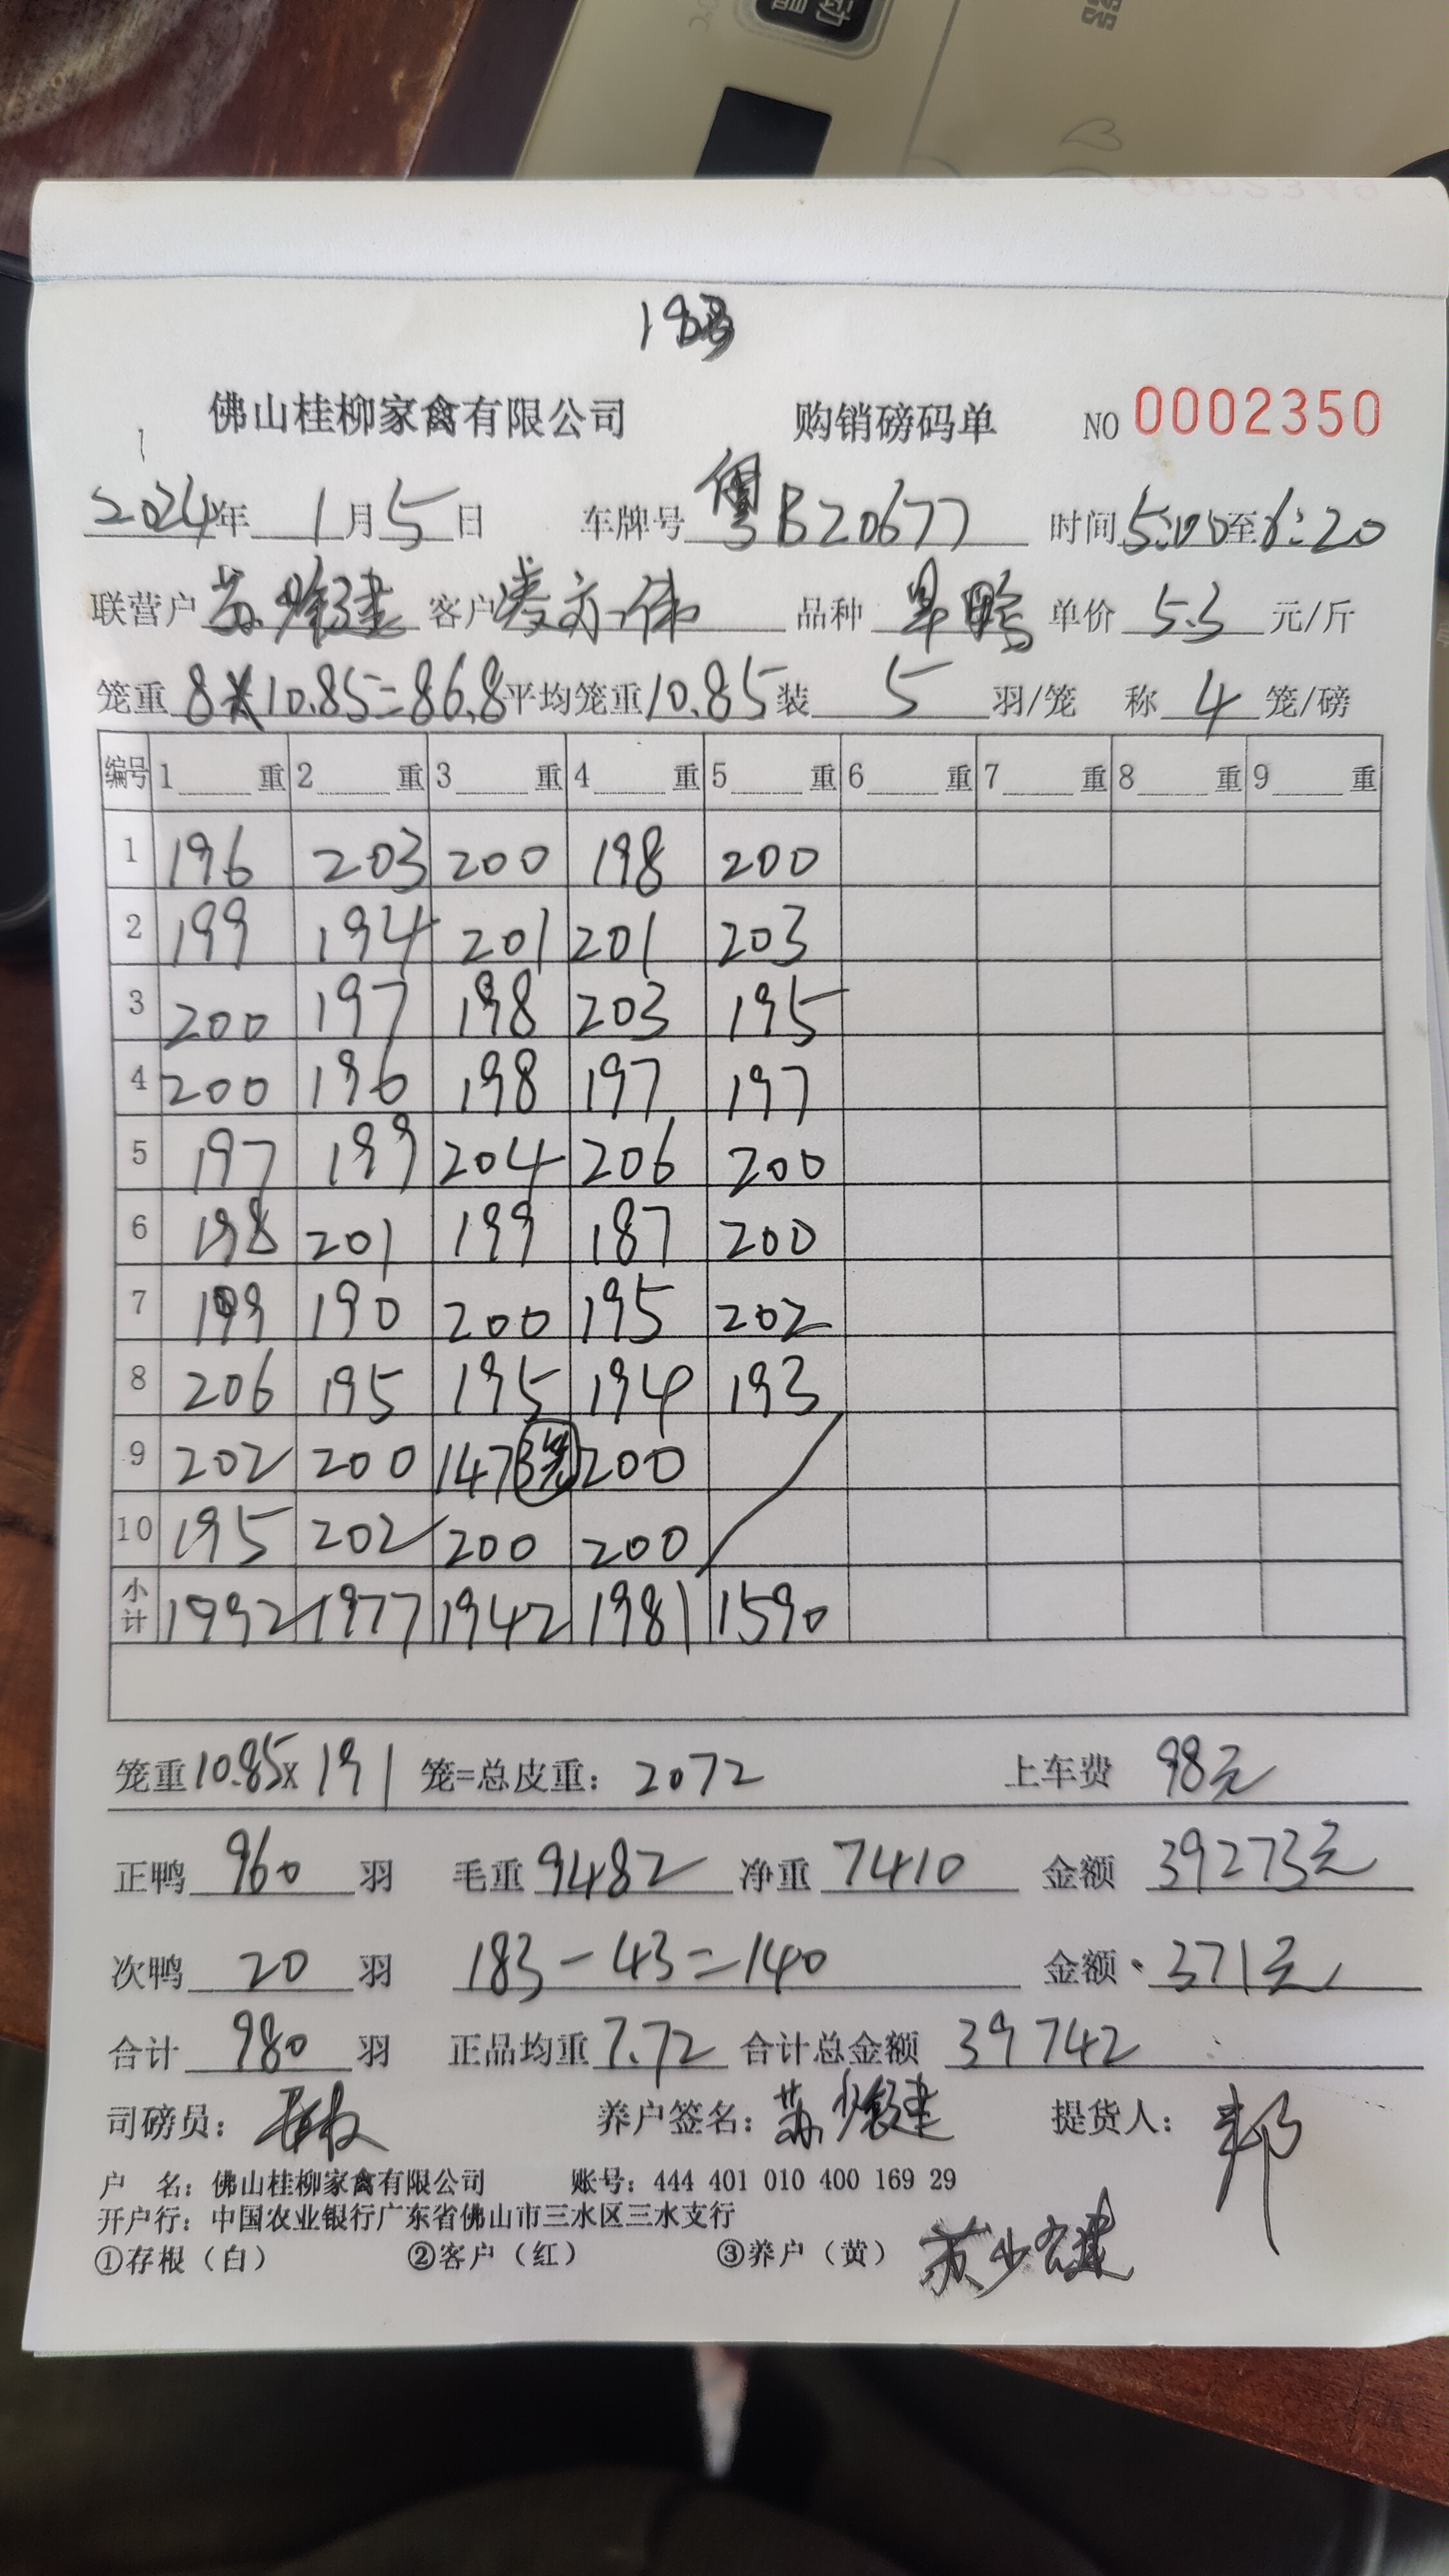 18号
佛山桂柳家禽有限公司 购销磅码单 NO 0002350
2024年 1月5日 车牌号 粤B20677 时间 5:00至6:20
联营户 苏 建 客户 凌亦伟 品种 单价 5.3 元/斤
笼重 8×10.85=86.8 平均笼重 10.85 装 5 羽/笼 称 4 笼/磅
编号 1 重 2 重 3 重 4 重 5 重 6 重 7 重 8 重 9 重
1 196 203 200 198 200
2 199 194 201 201 203
3 200 197 198 203 195
4 200 196 198 197 197
5 197 199 204 206 200
6 198 201 199 187 200
7 199 190 200 195 202
8 206 195 195 194 193
9 202 200 147 3笼 200
10 195 202 200 200
小计 1992 1977 1942 1981 1590
笼重 10.85×191 笼=总皮重: 2072 上车费 98元
正鸭 960 羽 毛重 9482 净重 7410 金额 39273元
次鸭 20 羽 183-43=140 金额 371元
合计 980 羽 正品均重 7.72 合计总金额 39742
司磅员: 养户签名: 苏 建 提货人: 邦
户 名: 佛山桂柳家禽有限公司 账号: 444 401 010 400 169 29
开户行: 中国农业银行广东省佛山市三水区三水支行
①存根（白） ②客户（红） ③养户（黄）